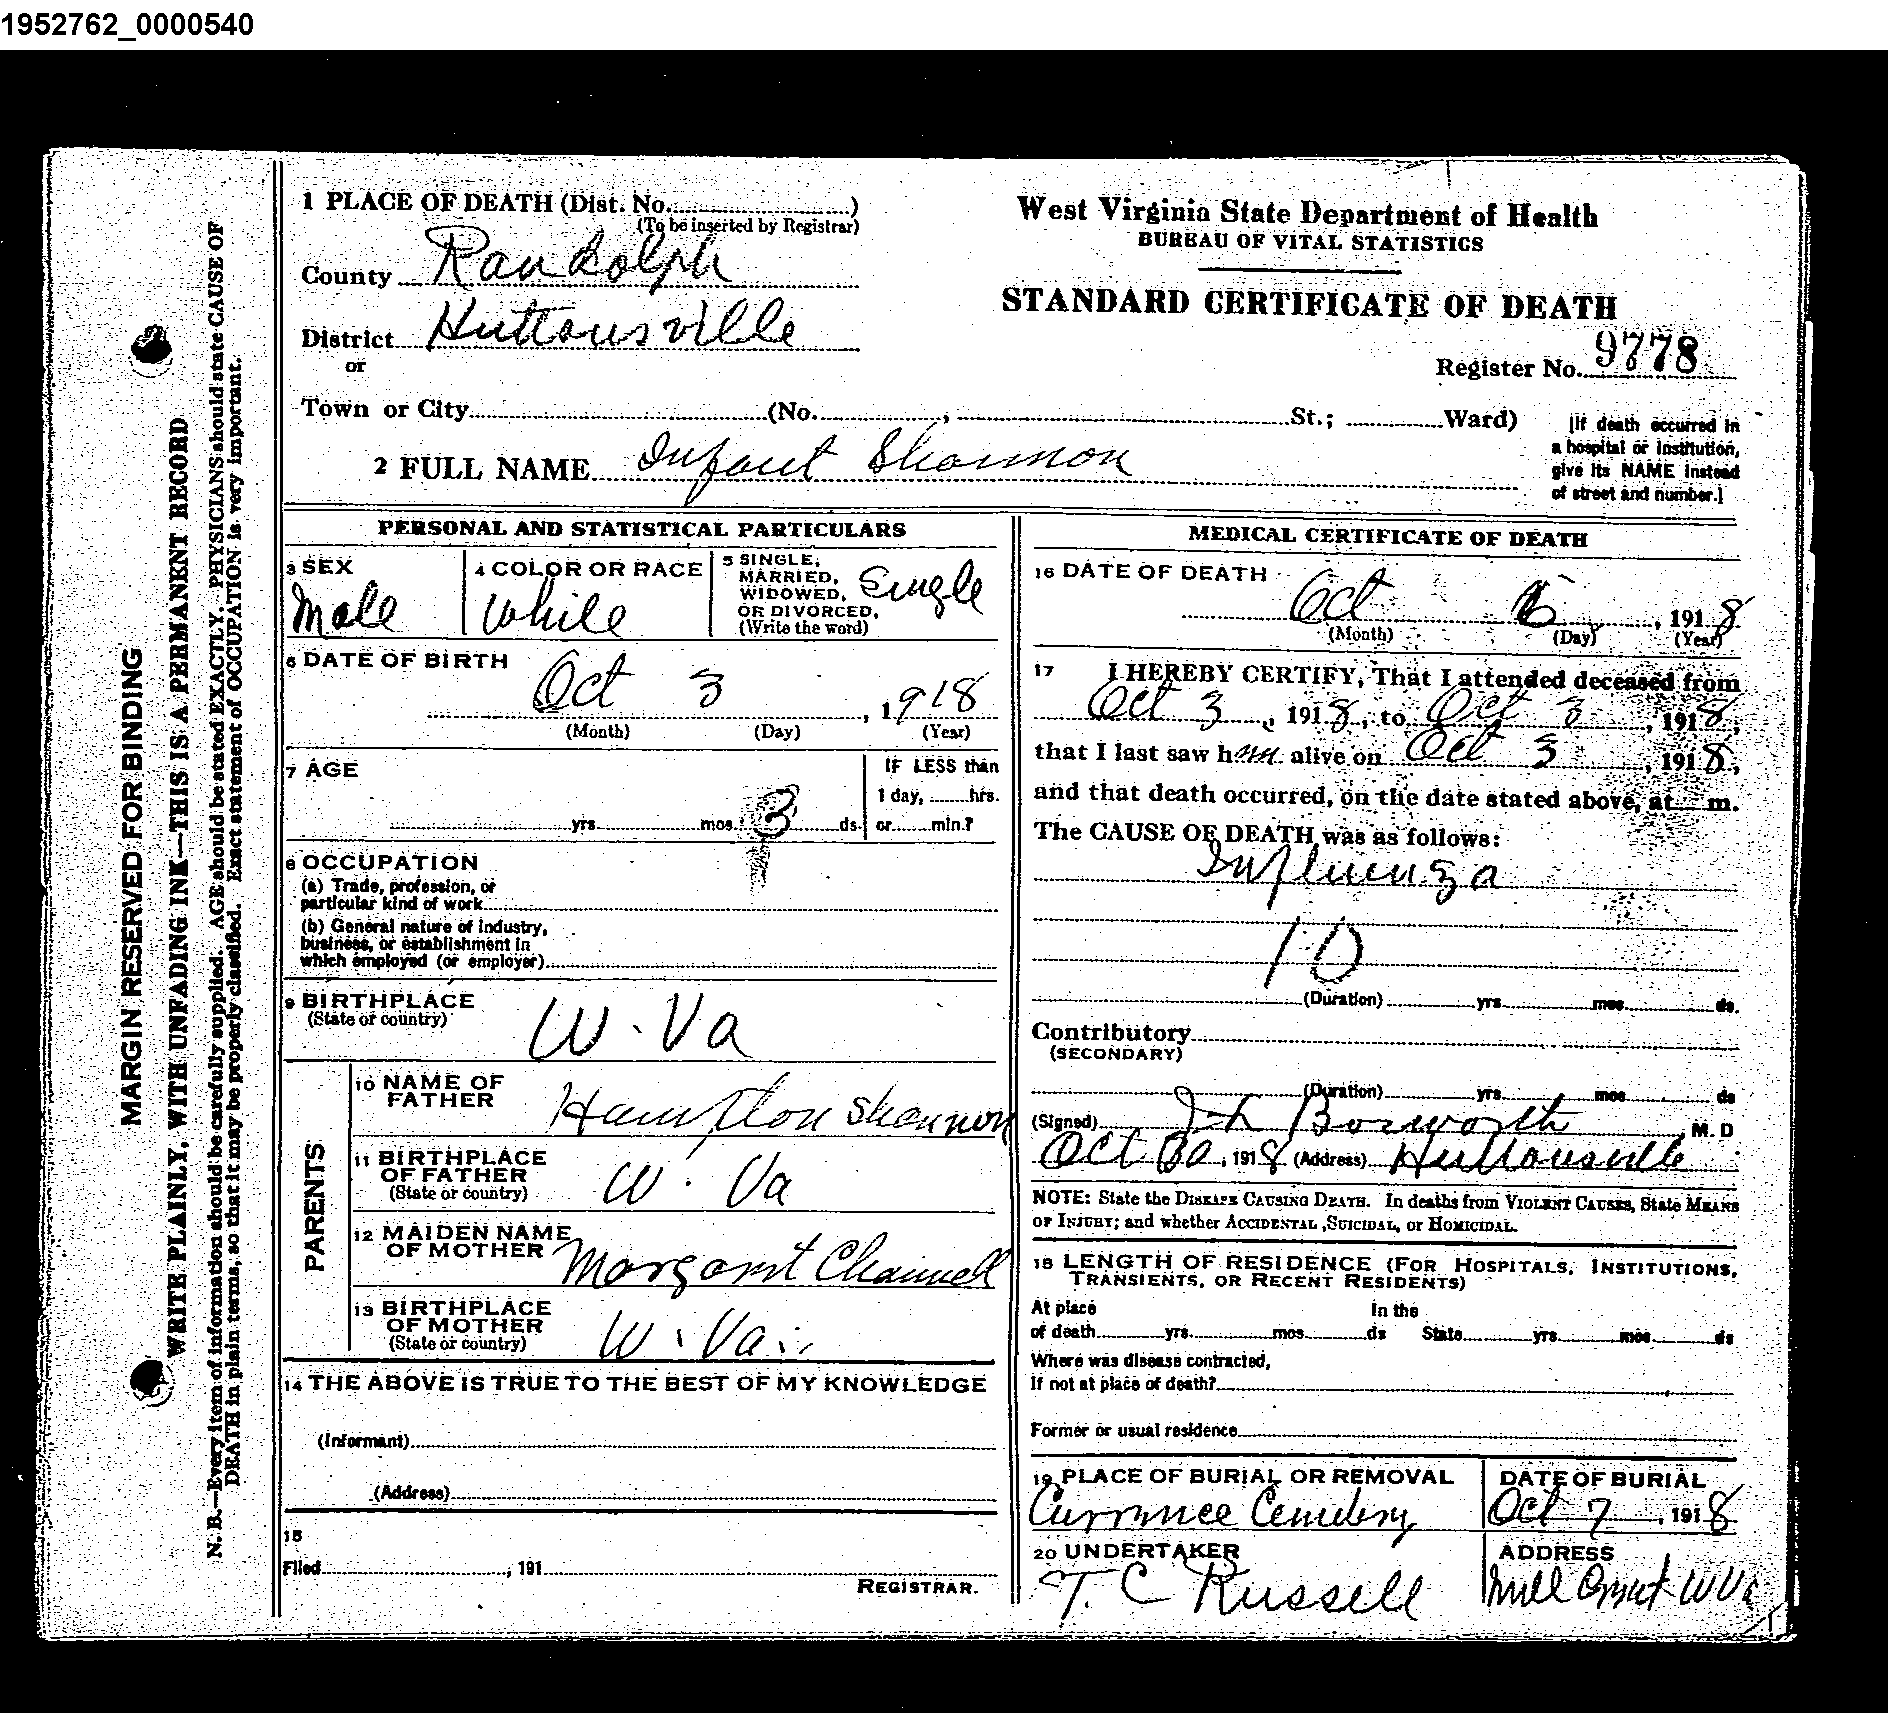 1952762_0000540
1 PLACE OF DEATH (Dist. No. )
(To be inserted by Registrar)
County Randolph
District Huttonsville
or
Town or City (No. , St.; Ward)
2 FULL NAME Infant Shannon
West Virginia State Department of Health
BUREAU OF VITAL STATISTICS
STANDARD CERTIFICATE OF DEATH
Register No. 9778
[If death occurred in
a hospital or institution,
give its NAME instead
of street and number.]
MARGIN RESERVED FOR BINDING
WRITE PLAINLY, WITH UNFADING INK—THIS IS A PERMANENT RECORD
N. B.—Every item of information should be carefully supplied. AGE should be stated EXACTLY. PHYSICIANS should state CAUSE OF
DEATH in plain terms, so that it may be properly classified. Exact statement of OCCUPATION is very important.
PERSONAL AND STATISTICAL PARTICULARS
3 SEX
Male
4 COLOR OR RACE
White
5 SINGLE,
MARRIED,
WIDOWED,
OR DIVORCED.
(Write the word)
Single
6 DATE OF BIRTH
Oct 3 , 1918
(Month) (Day) (Year)
7 AGE
yrs. mos. 3 ds.
IF LESS than
1 day, hrs.
or min.?
8 OCCUPATION
(a) Trade, profession, or
particular kind of work
(b) General nature of industry,
business, or establishment in
which employed (or employer)
9 BIRTHPLACE
(State or country)
W. Va
PARENTS
10 NAME OF
FATHER
Hampton Shannon
11 BIRTHPLACE
OF FATHER
(State or country)
W. Va
12 MAIDEN NAME
OF MOTHER
Margaret Channell
13 BIRTHPLACE
OF MOTHER
(State or country)
W. Va.
14 THE ABOVE IS TRUE TO THE BEST OF MY KNOWLEDGE
(Informant)
(Address)
15
Filed , 191
REGISTRAR.
MEDICAL CERTIFICATE OF DEATH
16 DATE OF DEATH
Oct 6 , 1918
(Month) (Day) (Year)
17 I HEREBY CERTIFY, That I attended deceased from
Oct 3 , 1918, to Oct 3 , 1918,
that I last saw him alive on Oct 3 , 1918,
and that death occurred, on the date stated above, at m.
The CAUSE OF DEATH was as follows:
Influenza
10
(Duration) yrs. mos. ds.
Contributory
(SECONDARY)
(Duration) yrs. mos. ds
(Signed) Bosworth , M. D
Oct 30, 1918 (Address) Huttonsville
NOTE: State the DISEASE CAUSING DEATH. In deaths from VIOLENT CAUSES, State MEANS
OF INJURY; and whether ACCIDENTAL, SUICIDAL, or HOMICIDAL.
18 LENGTH OF RESIDENCE (FOR HOSPITALS, INSTITUTIONS,
TRANSIENTS, OR RECENT RESIDENTS)
At place In the
of death yrs. mos. ds State yrs. mos. ds
Where was disease contracted,
If not at place of death?
Former or usual residence
19 PLACE OF BURIAL OR REMOVAL
Currence Cemetery
DATE OF BURIAL
Oct 7 , 1918
20 UNDERTAKER
T. C Russell
ADDRESS
Mill Creek W Va